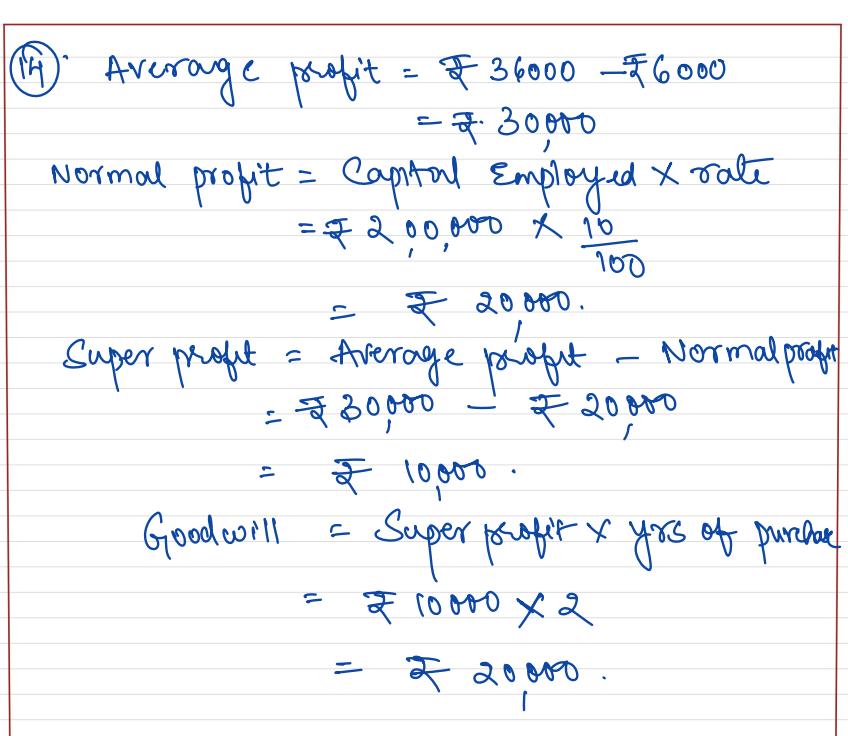 (14). Average profit = ₹ 36000 - ₹6000
= ₹. 30,000
Normal profit = Capital Employed × rate
= ₹ 2,00,000 × 10/100
= ₹ 20,000.
Super profit = Average profit - Normal profit
= ₹ 30,000 - ₹ 20,000
= ₹ 10,000.
Goodwill = Super profit × yrs of purchase
= ₹ 10000 × 2
= ₹ 20,000.